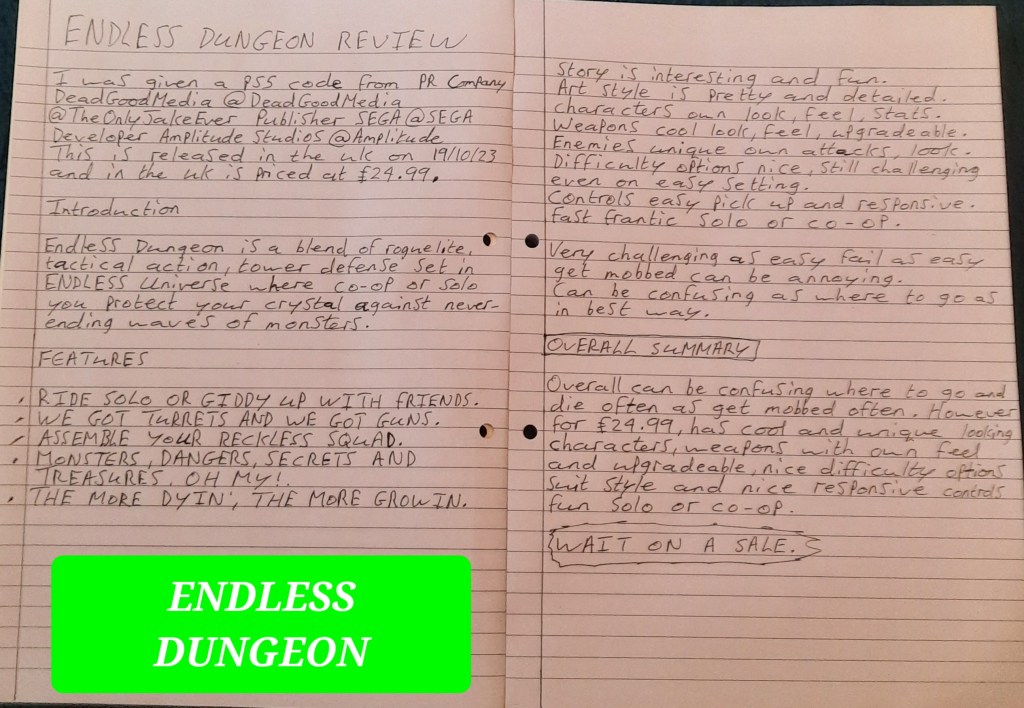 ENDLESS DUNGEON REVIEW
I was given a PS5 code from PR Company
DeadGoodMedia @DeadGoodMedia
@TheOnlyJakeEver Publisher SEGA @SEGA
Developer Amplitude Studios @Amplitude
This is released in the UK on 19/10/23
and in the UK is Priced at £24.99.
Introduction
Endless Dungeon is a blend of roguelite,
tactical action, tower defense set in
ENDLESS Universe where co-op or solo
you protect your crystal against never-
ending waves of monsters.
FEATURES
• RIDE SOLO OR GIDDY UP WITH FRIENDS.
• WE GOT TURRETS AND WE GOT GUNS.
• ASSEMBLE YOUR RECKLESS SQUAD.
• MONSTERS, DANGERS, SECRETS AND
TREASURES, OH MY!.
• THE MORE DYIN', THE MORE GROWIN.
ENDLESS
DUNGEON
Story is interesting and fun.
Art style is pretty and detailed.
Characters own look, feel, stats.
Weapons cool look, feel, upgradeable.
Enemies unique own attacks, look.
Difficulty options nice, still challenging
even on easy setting.
Controls easy pick up and responsive.
Fast frantic solo or co-op.
Very challenging as easy fail as easy
get mobbed can be annoying.
Can be confusing as where to go as
in best way.
OVERALL SUMMARY
Overall can be confusing where to go and
die often as get mobbed often. However
for £24.99, has cool and unique looking
characters, weapons with own feel
and upgradeable, nice difficulty options
suit style and nice responsive controls
fun solo or co-op.
WAIT ON A SALE.